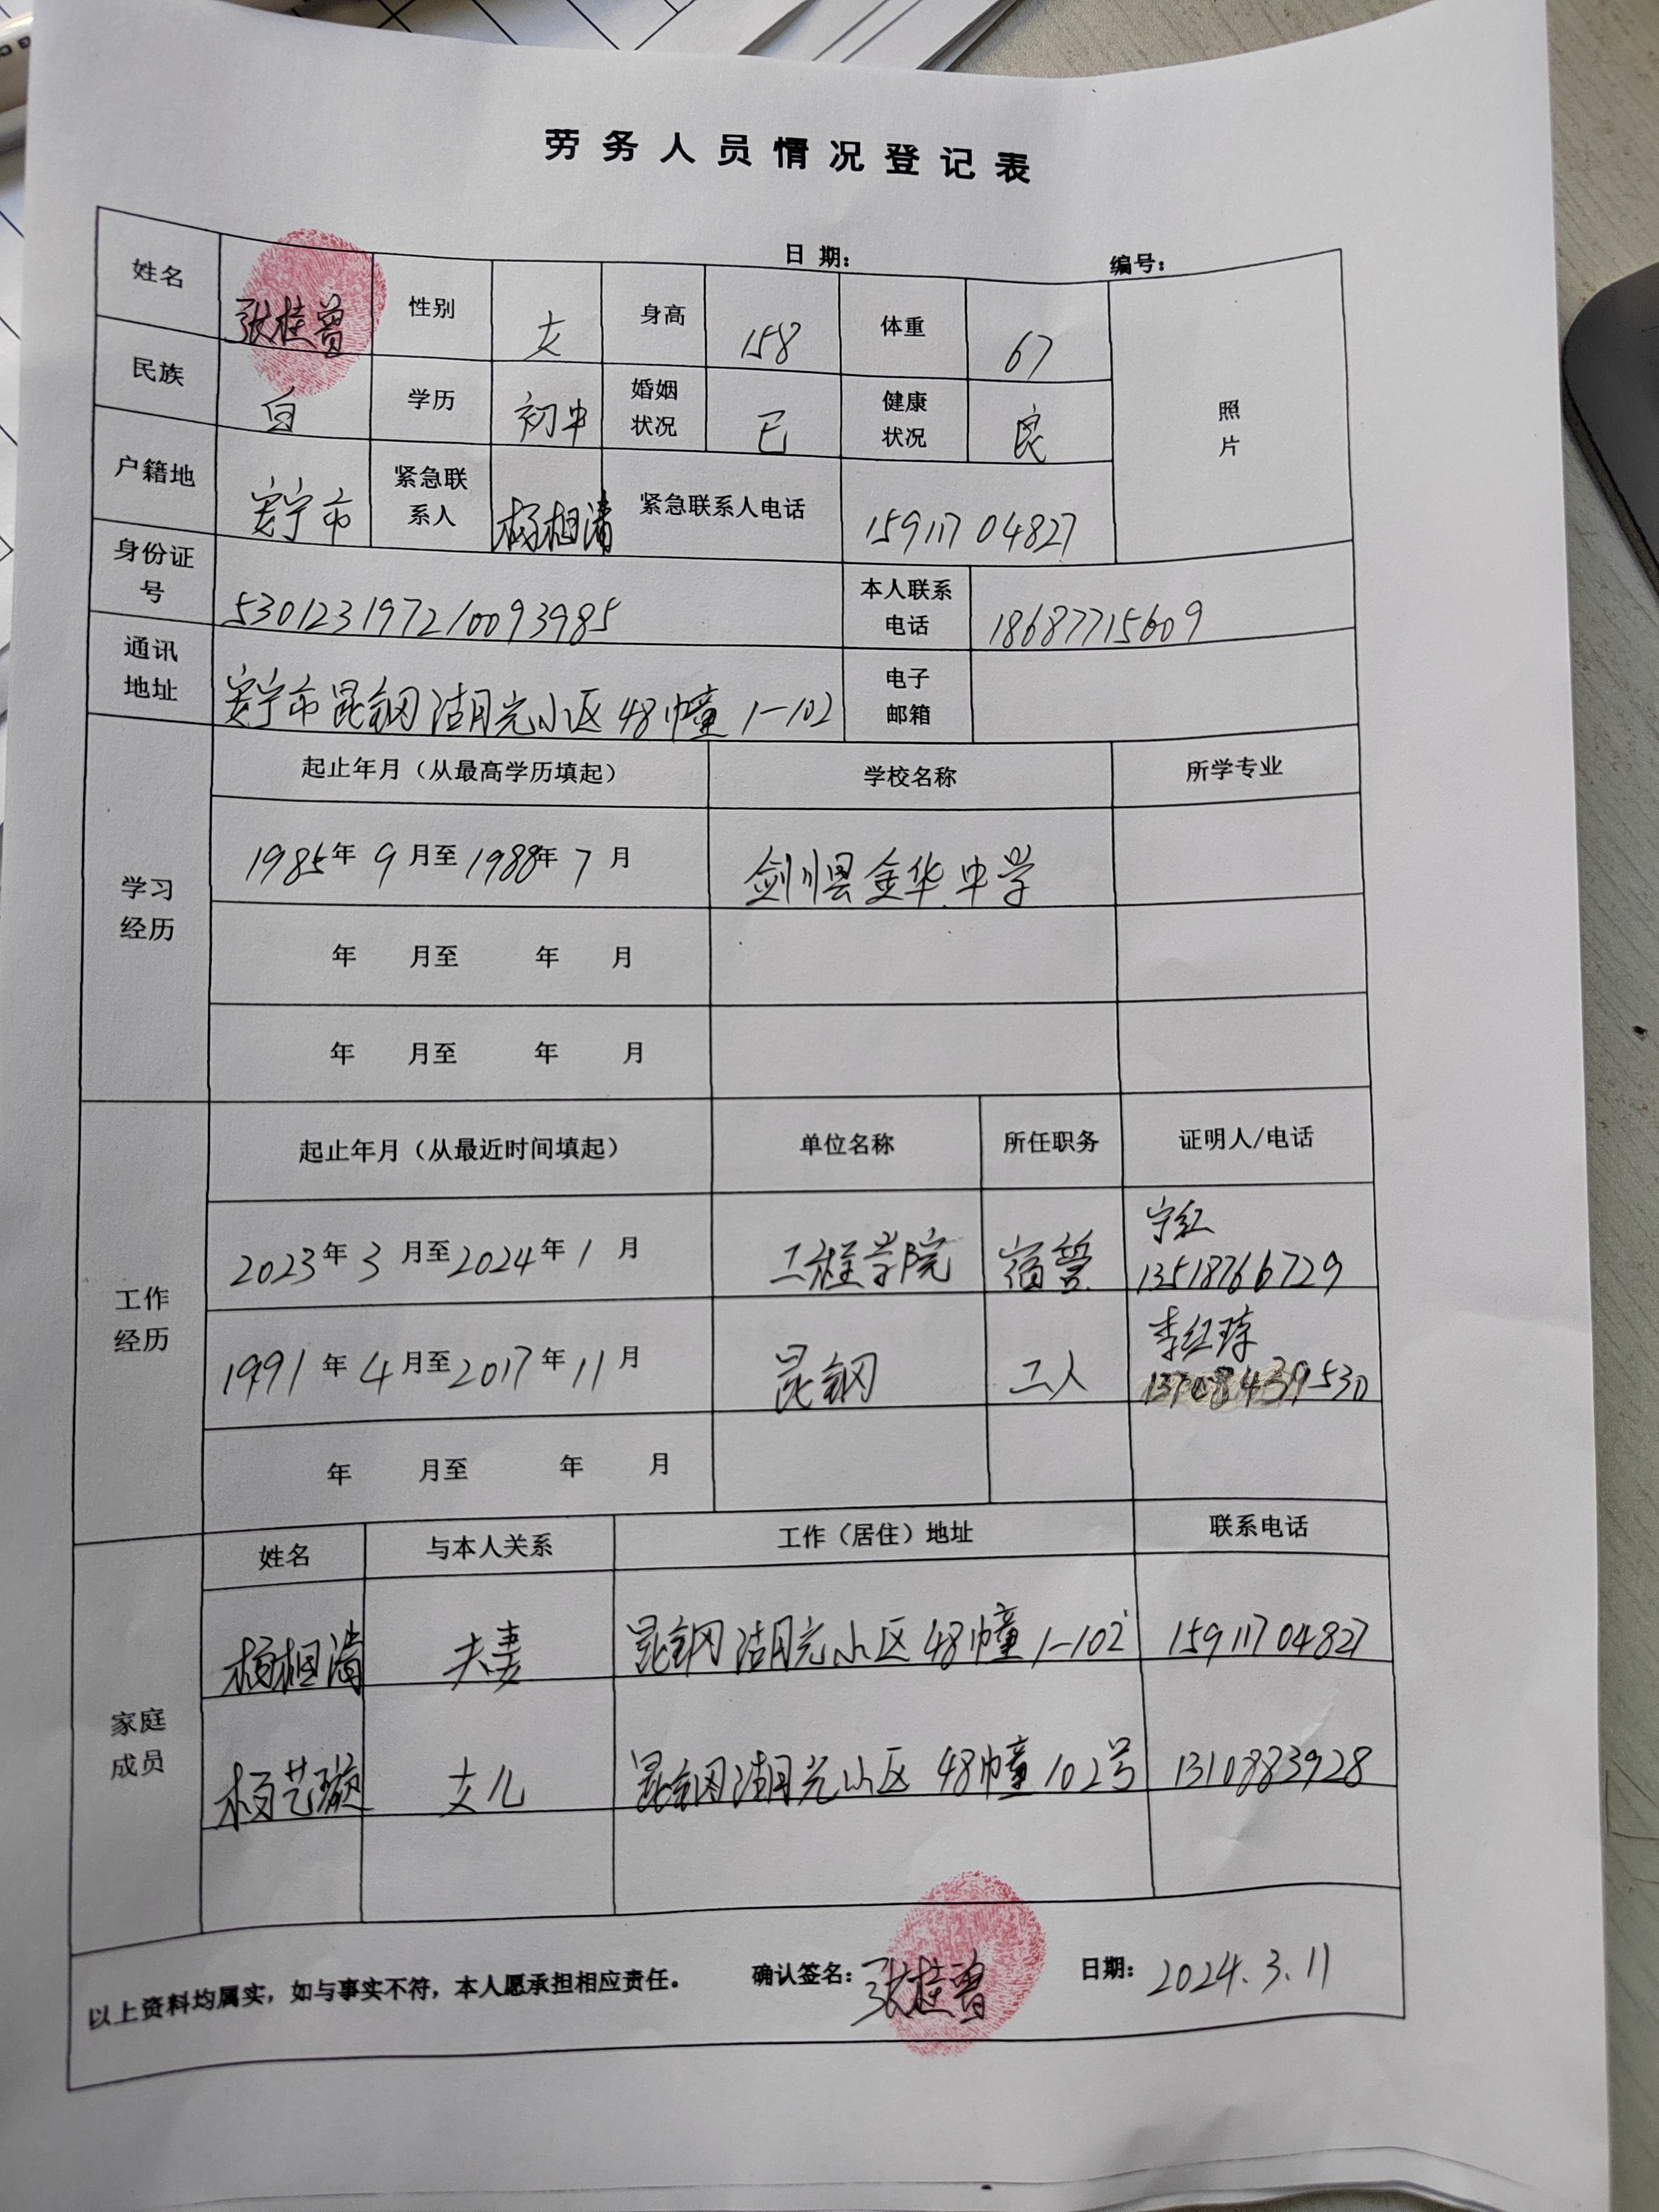 劳务人员情况登记表
日期： 编号：
姓名 张桂曾 性别 女 身高 158 体重 67 照片
民族 白 学历 初中 婚姻状况 已 健康状况 良
户籍地 安宁市 紧急联系人 杨相清 紧急联系人电话 15911704827
身份证号 530123197210093985 本人联系电话 18687715609
通讯地址 安宁市昆钢湖月光小区48幢1-102 电子邮箱
学习经历 起止年月（从最高学历填起） 学校名称 所学专业
1985年9月至1988年7月 剑川县金华中学
年 月至 年 月
年 月至 年 月
工作经历 起止年月（从最近时间填起） 单位名称 所任职务 证明人/电话
2023年3月至2024年1月 工程学院 宿管 宁红 13518766729
1991年4月至2017年11月 昆钢 工人 李红琼
年 月至 年 月
家庭成员 姓名 与本人关系 工作（居住）地址 联系电话
杨相清 夫妻 昆钢湖月光小区48幢1-102 15911704827
杨艺璇 女儿 昆钢湖月光小区48幢102号 1310883928
以上资料均属实，如与事实不符，本人愿承担相应责任。 确认签名：张桂曾 日期：2024.3.11